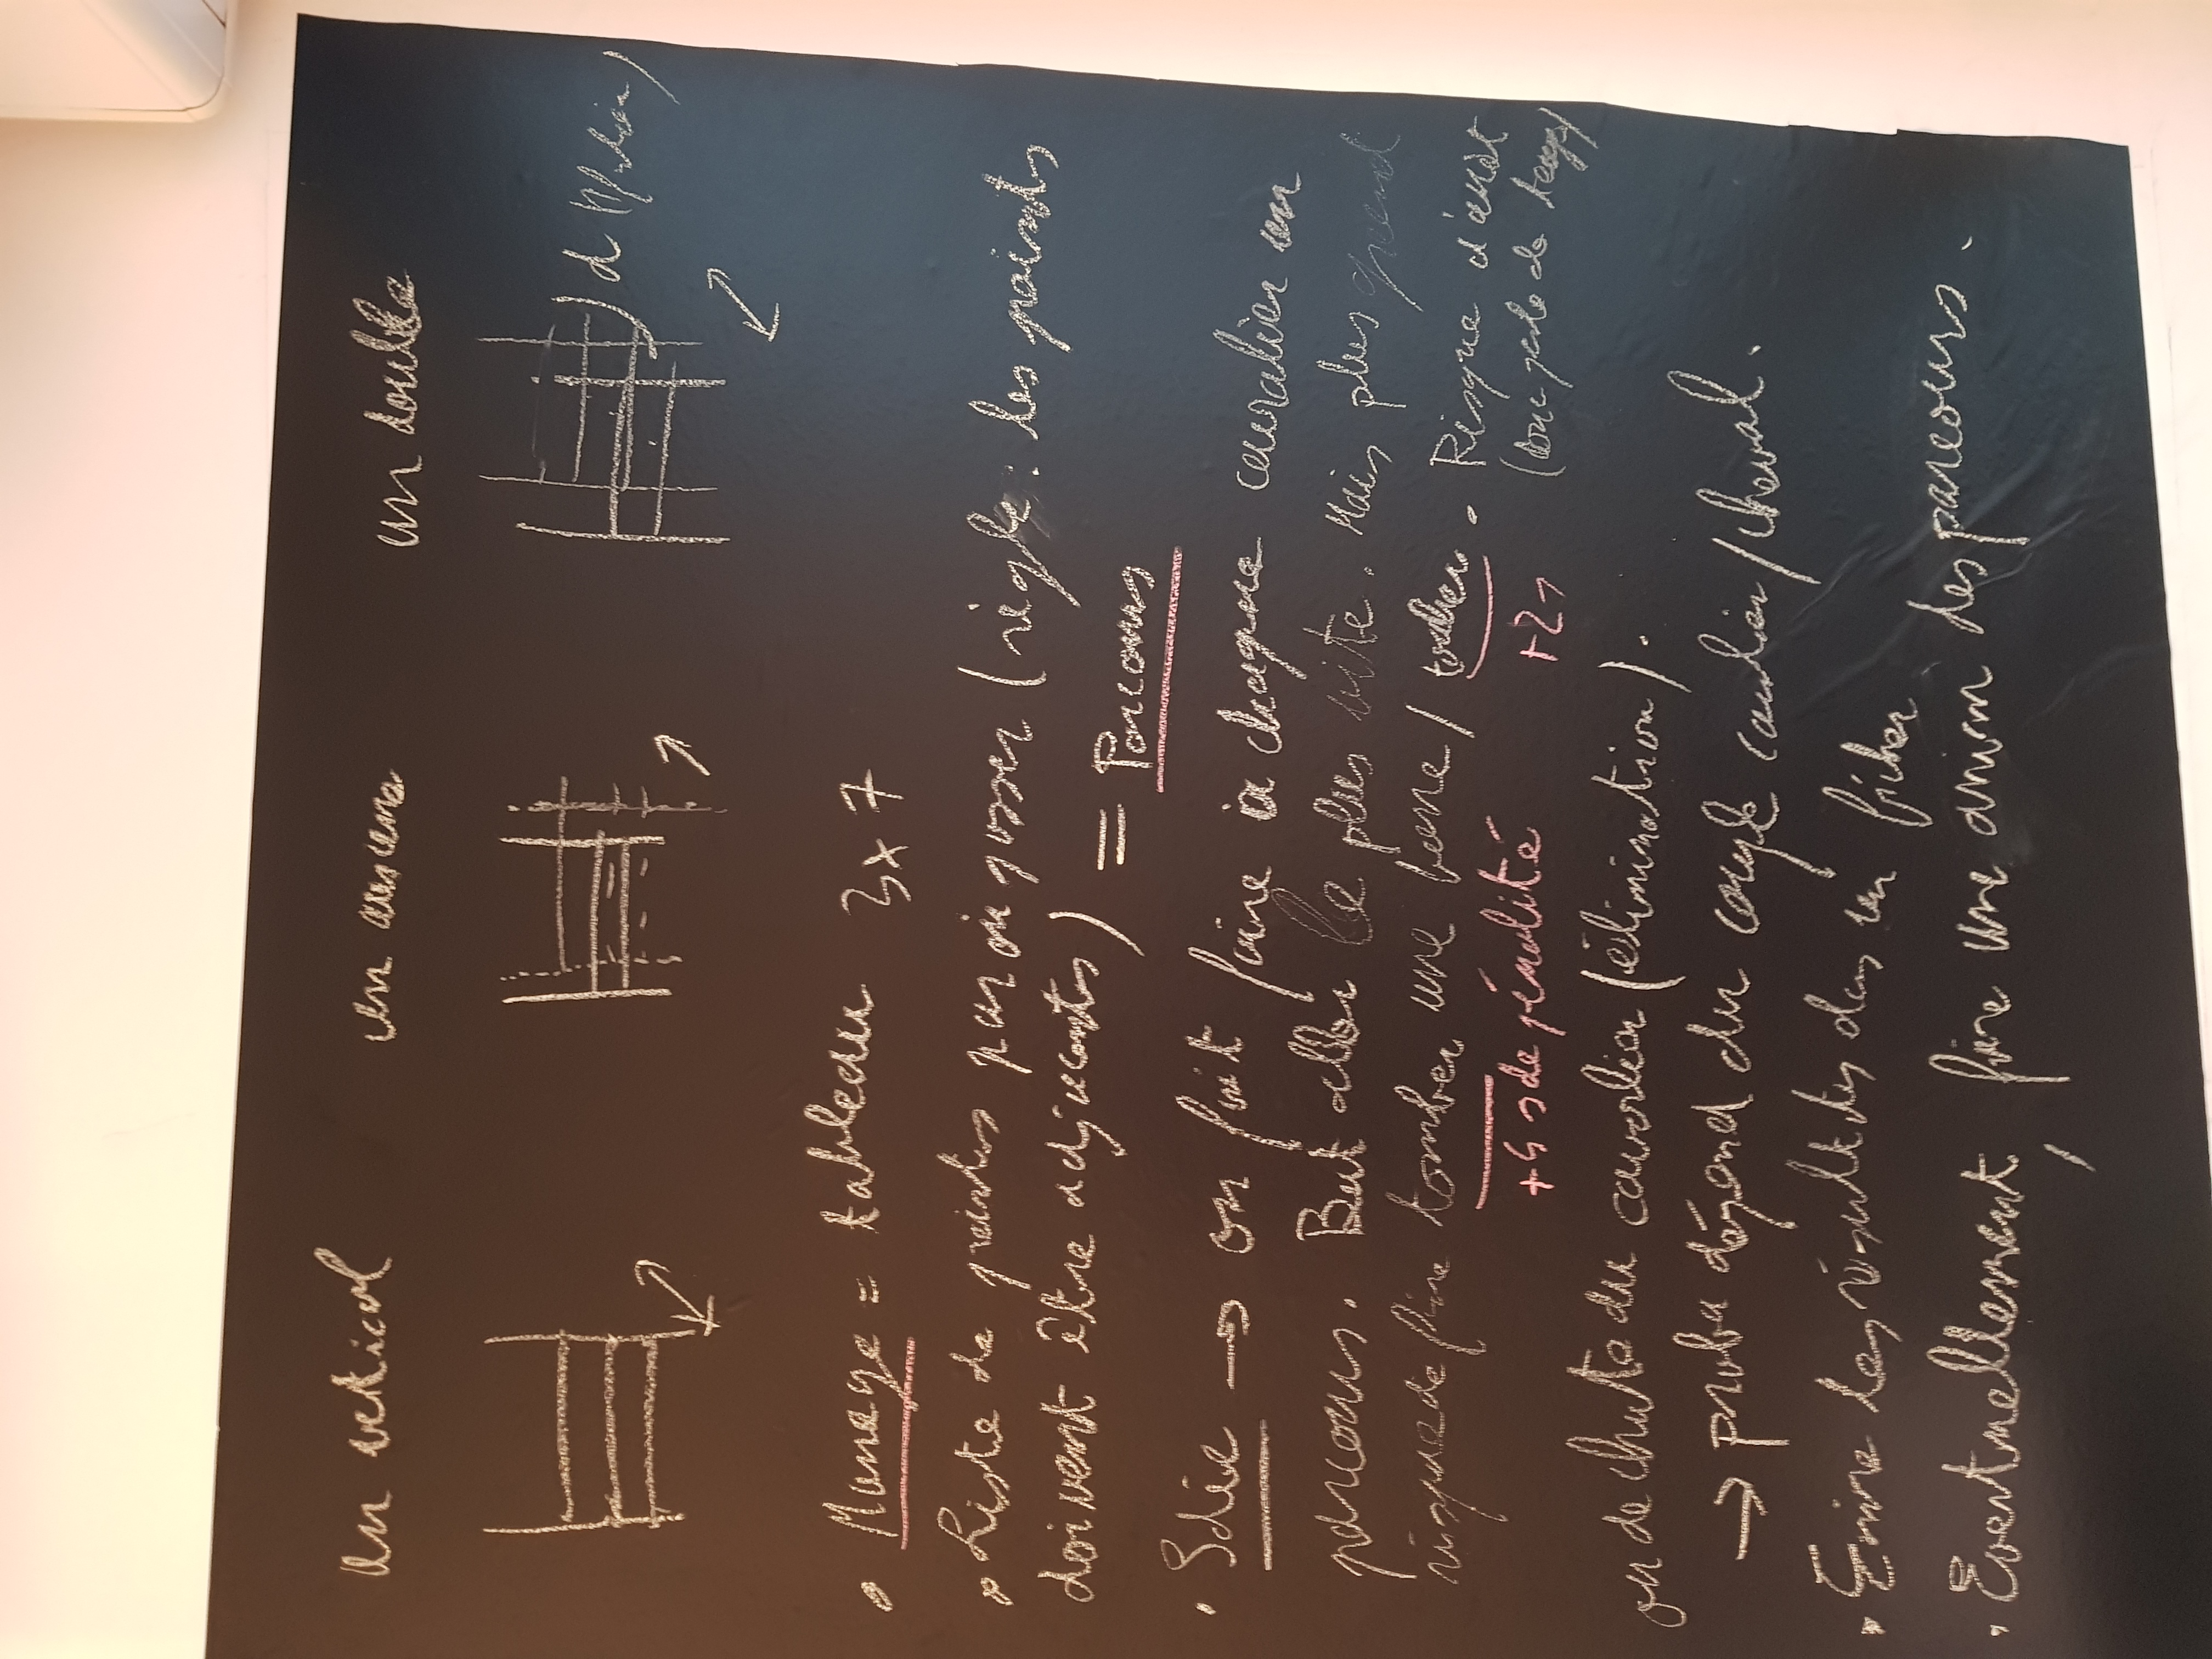 un vertical
un
un double
d
• Manege = tableau 3x7
• Liste de points par où passer (règle : les points
doivent être adjacents) = Parcours
• Idée → on fait faire à chaque cavalier un
parcours. But aller le plus vite. Mais plus grand
risque de faire tomber une barre / toucher. Risque d'arrêt
de pénalité +2s (donc perte de temps)
ou de chute du cavalier (élimination).
→ proba dépend du couple cavalier/cheval.
• Ecrire les résultats dans un fichier
• Eventuellement, faire une anim des parcours.